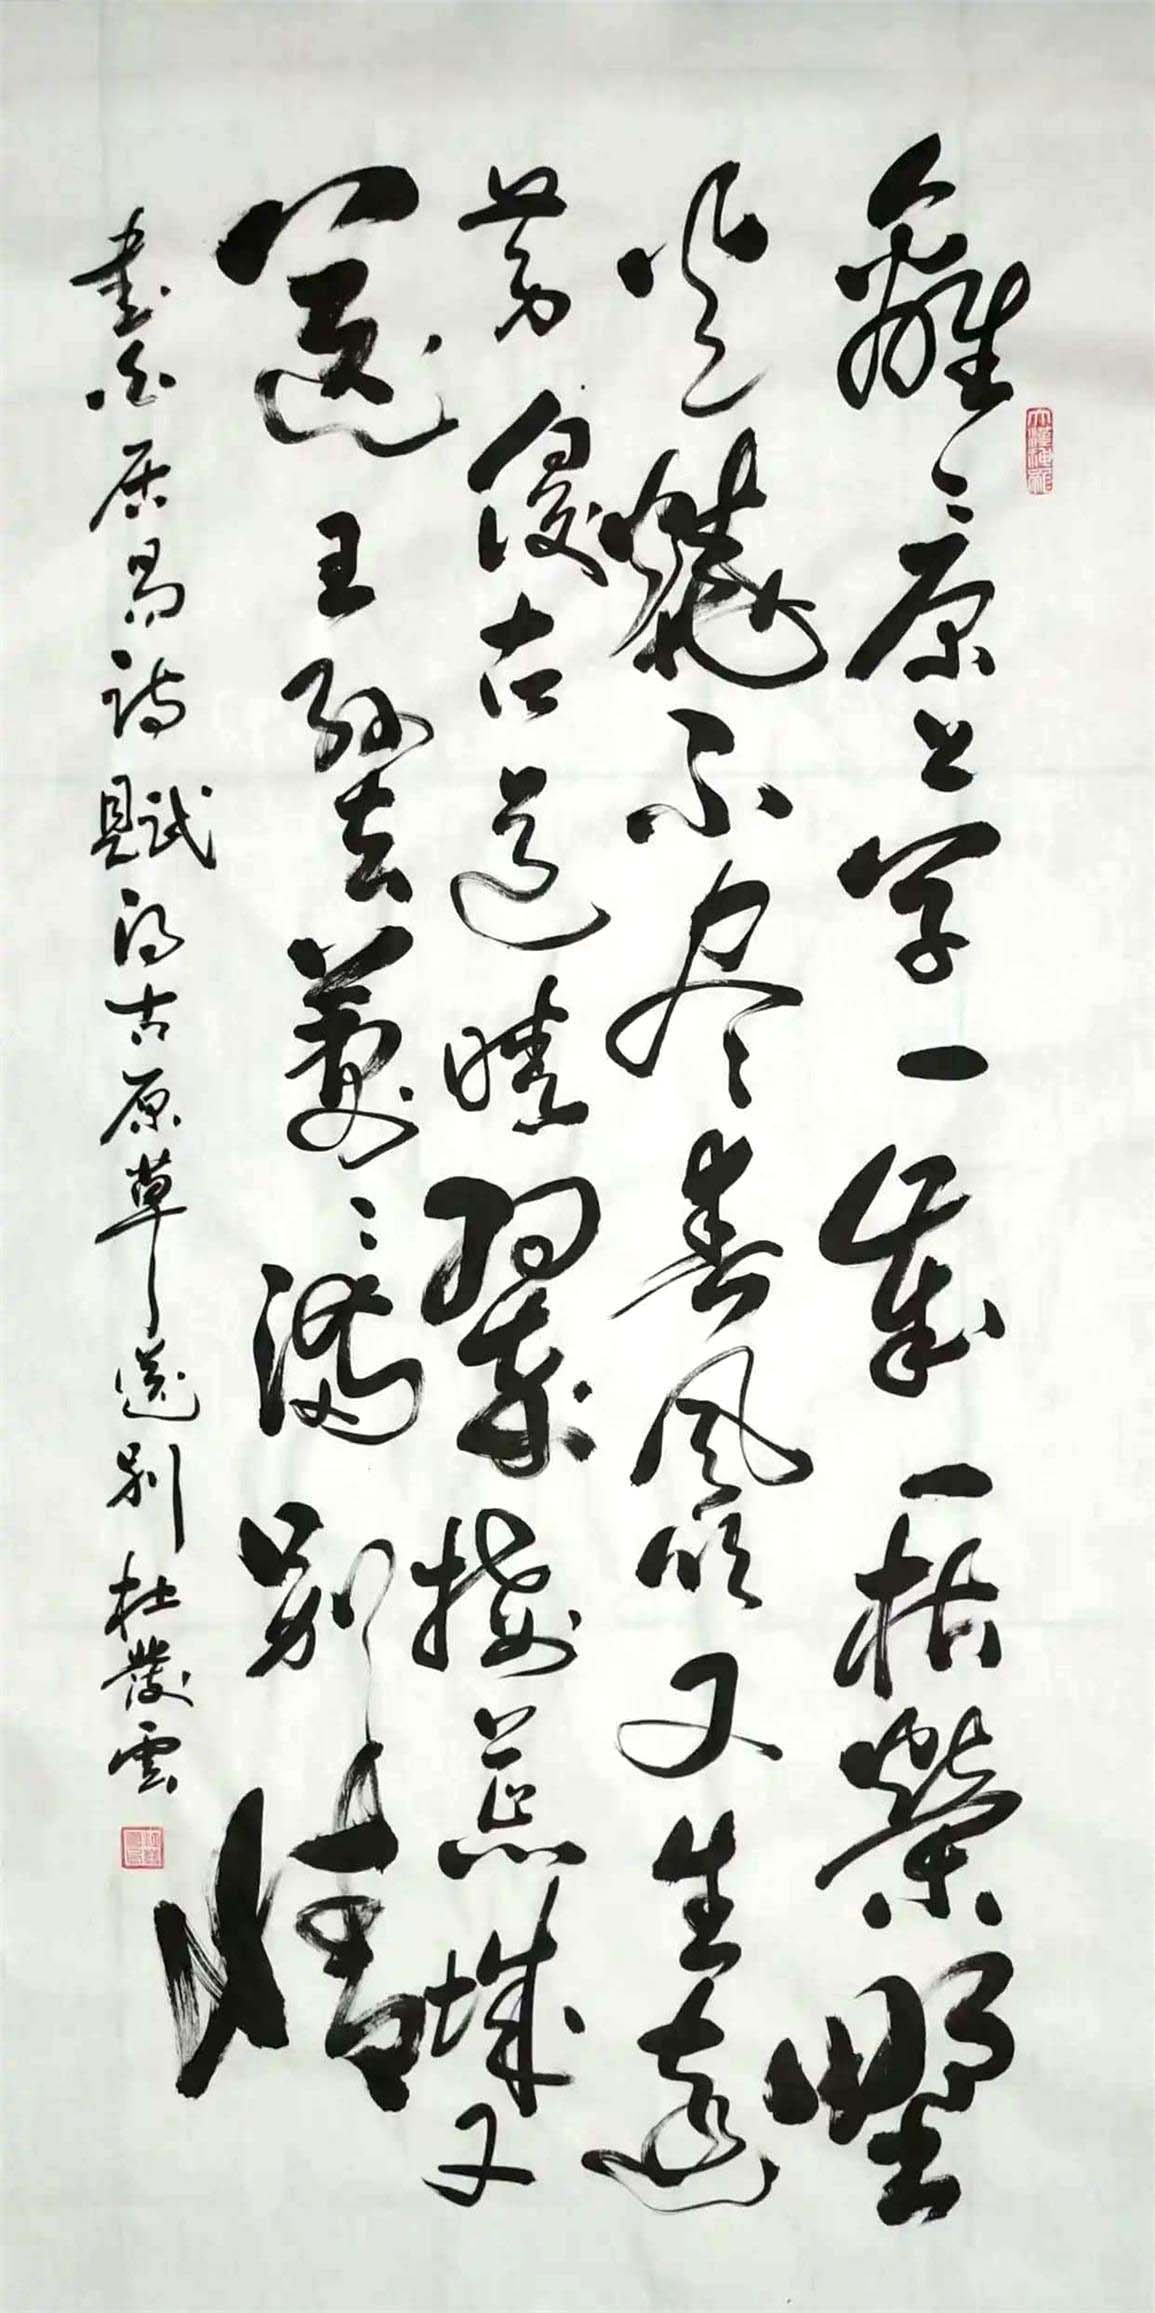 離〻原上草一歲一枯榮野
火燒不尽春風吹又生遠
芳侵古道晴翠接荒城又
送王孫去萋〻滿別情
書白居易詩賦得古原草送別 杜發雲